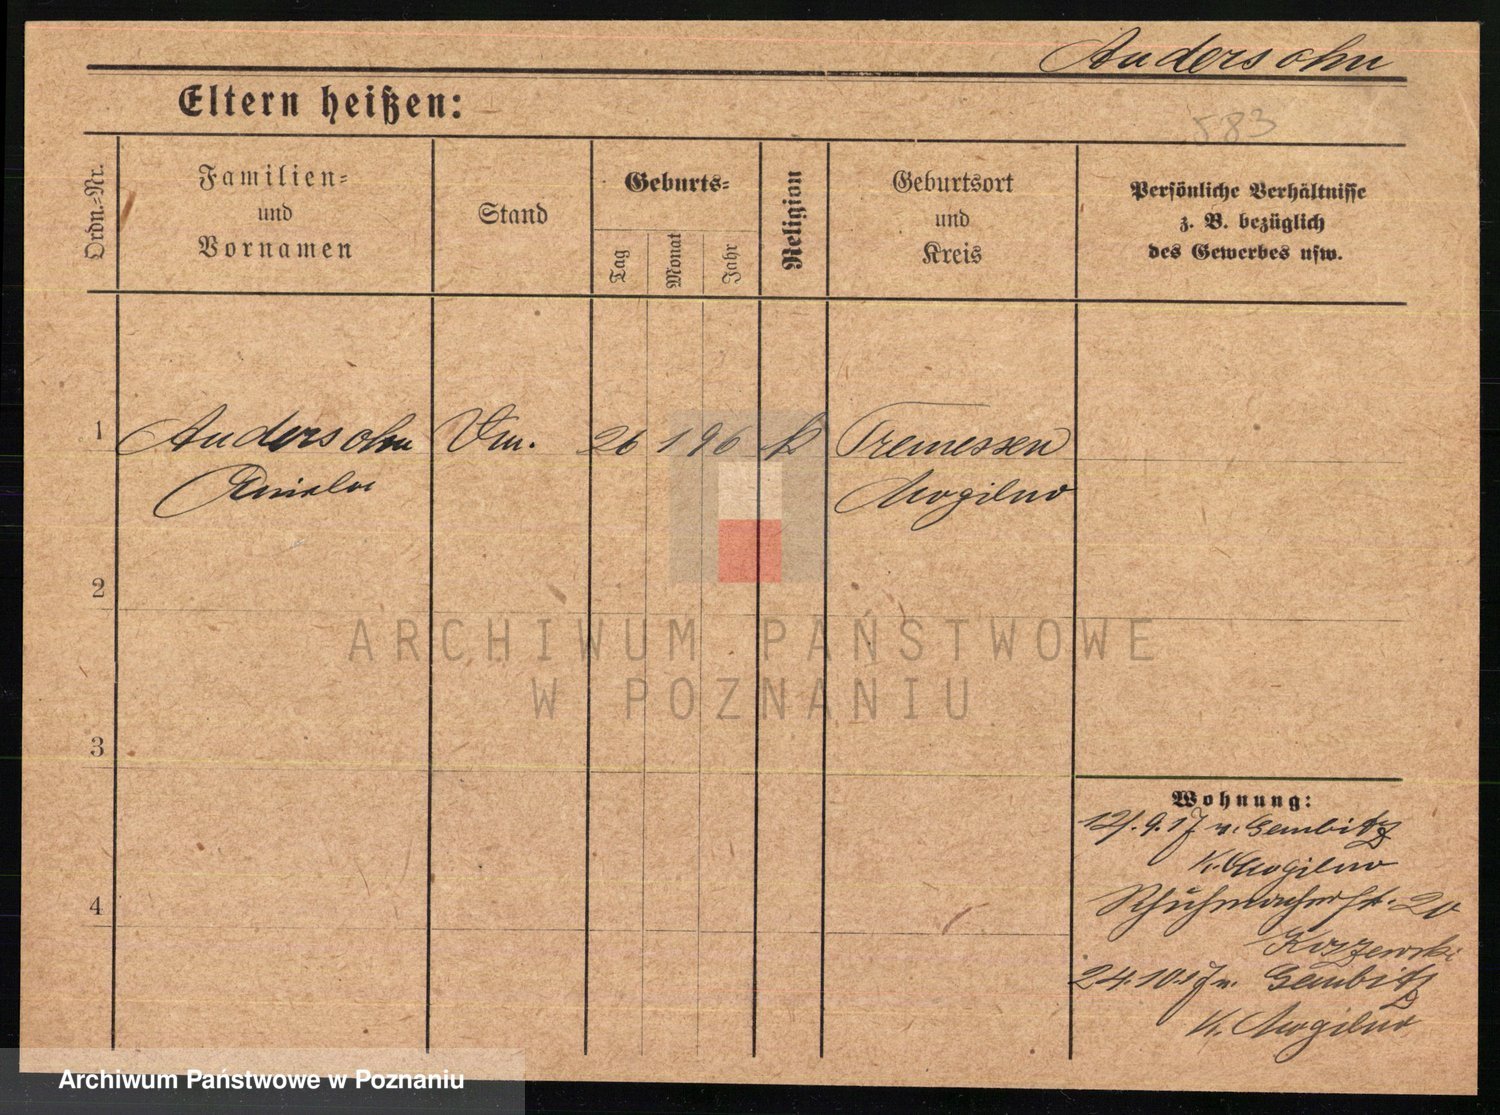 Andersohn
Eltern heißen:
583
Ordn.-Nr.
Familien-
und
Vornamen
Stand
Geburts-
Tag
Monat
Jahr
Religion
Geburtsort
und
Kreis
Persönliche Verhältnisse
z. B. bezüglich
des Gewerbes usw.
1 Andersohn Vm. 26 1 96 k Tremessen
Mogilno
2
ARCHIWUM PAŃSTWOWE
W POZNANIU
3
Wohnung:
12/.9.17 v. Gembitz
K. Mogilno
4
Schuhmacherst. 20
24.10.17 Gembitz
K. Mogilno
Archiwum Państwowe w Poznaniu